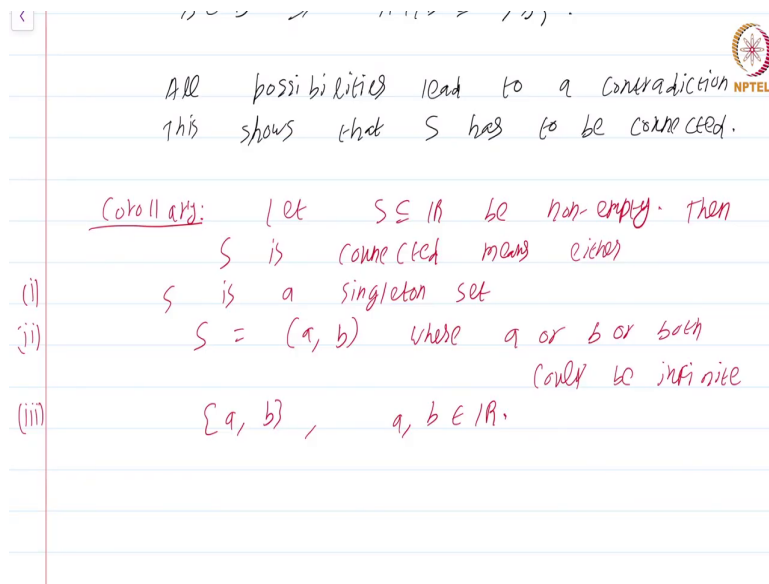 All possibilities lead to a contradiction
This shows that S has to be connected.
NPTEL
Corollary: Let S ⊆ IR be non-empty. Then
S is connected means either
(i) S is a singleton set
(ii) S = (a, b) where a or b or both
could be infinite
(iii) {a, b}, a, b ∈ IR.